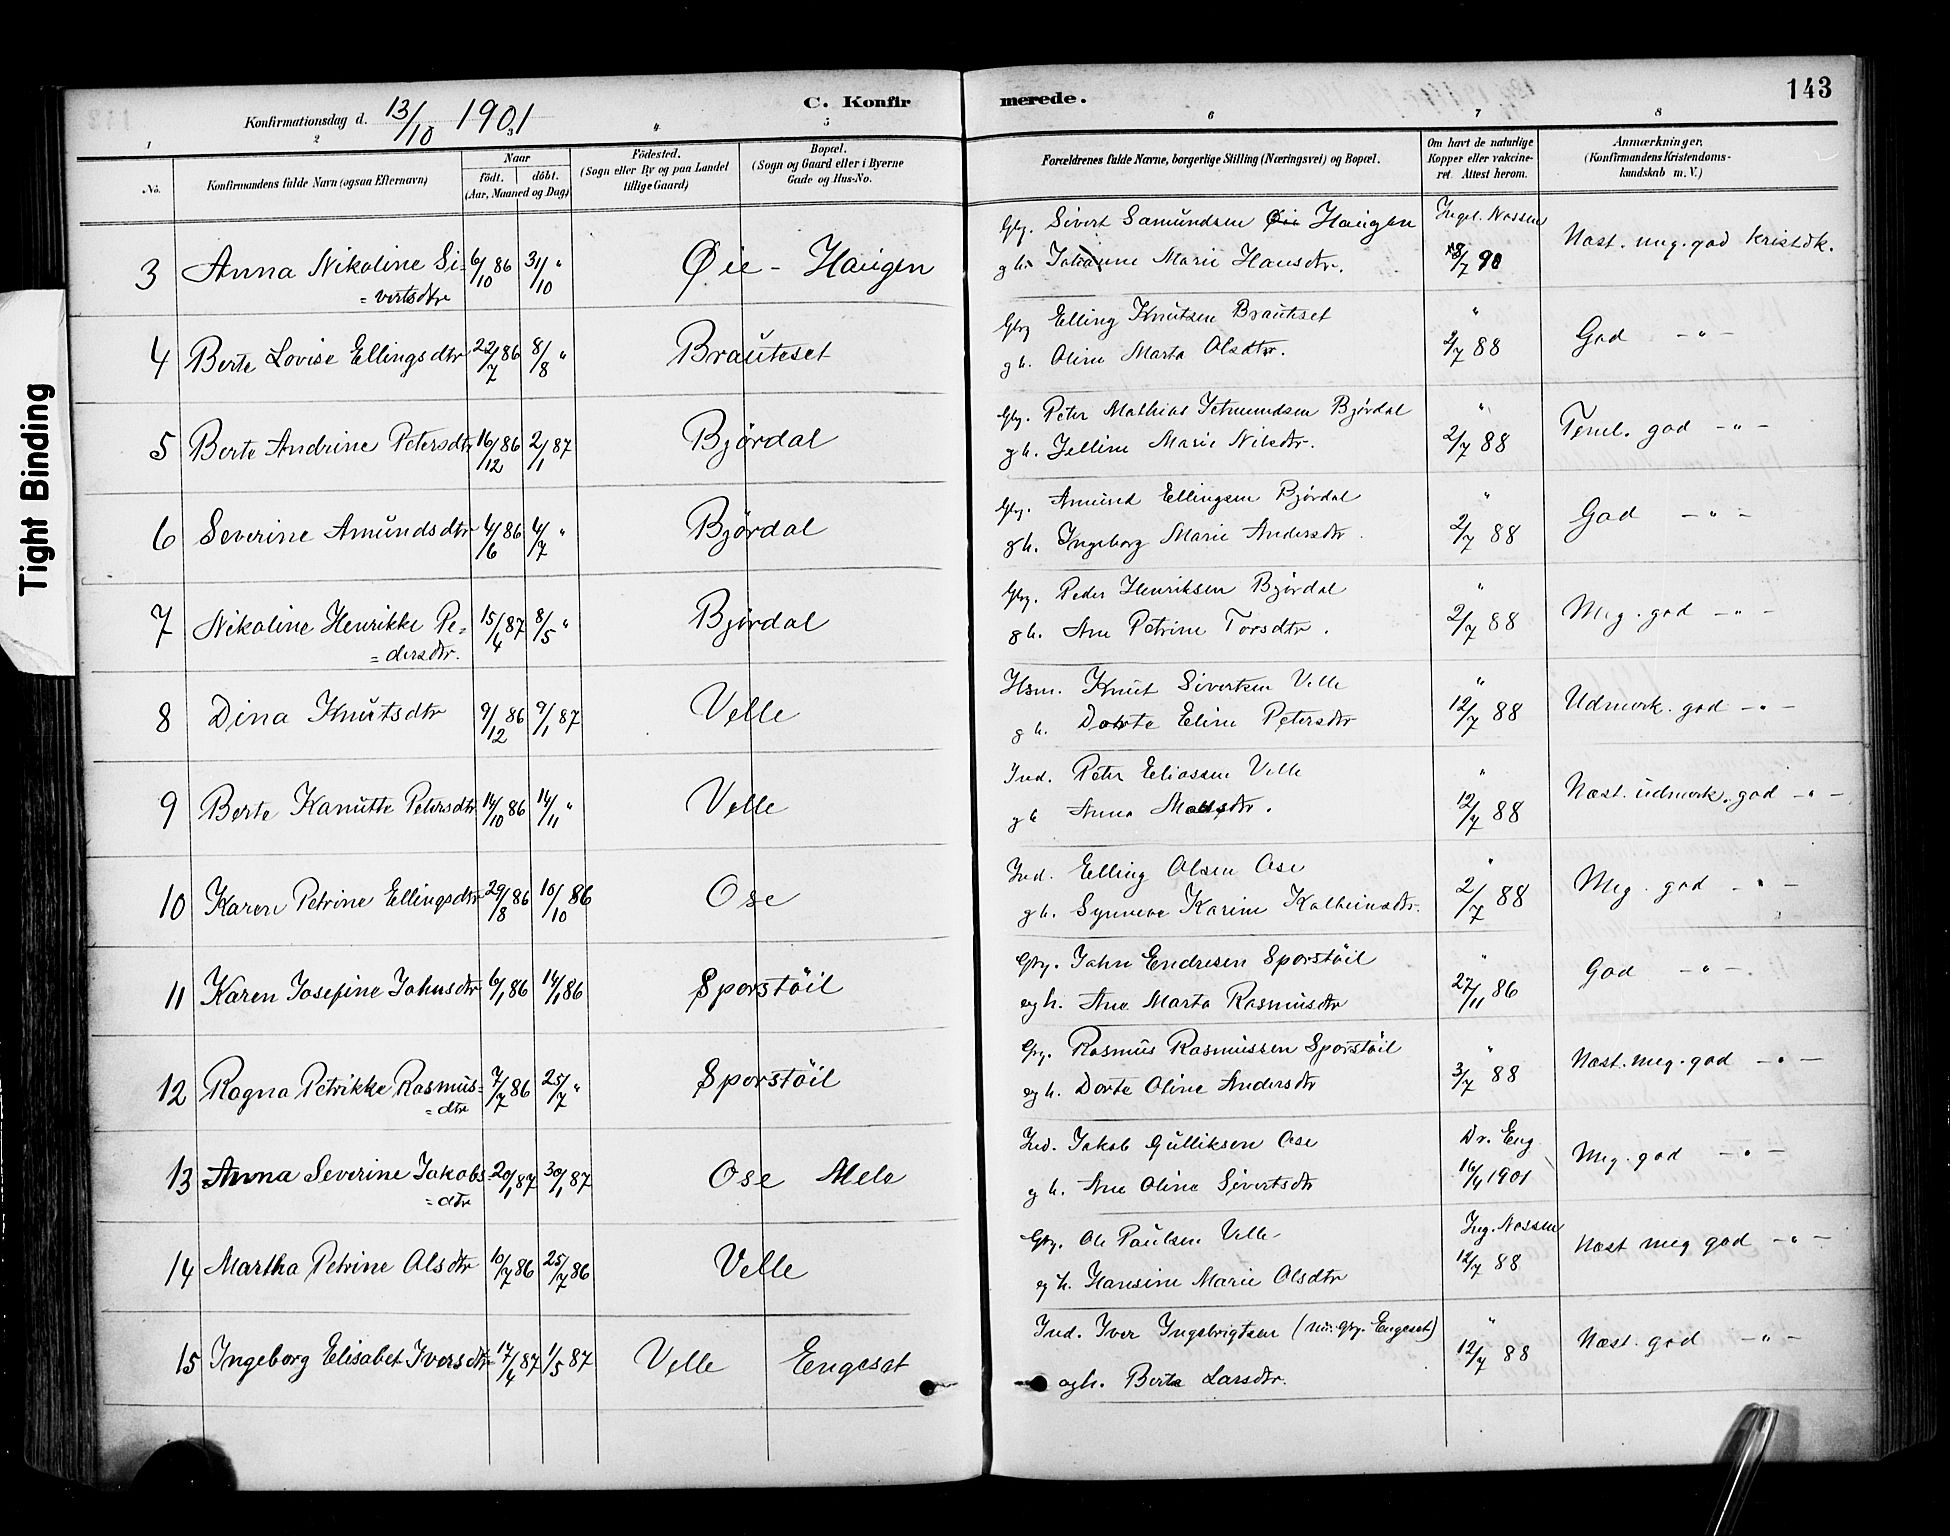 Tight Binding
143
C. Konfirmerede.
Konfirmationsdag d. 13/10 1901
1 2 3 4 5 6 7 8
No.
Konfirmandens fulde Navn (ogsaa Efternavn)
Naar
födt. döbt.
(Aar, Maaned og Dag)
Födested.
(Sogn eller By og paa Landet
tillige Gaard)
Bopæl.
(Sogn og Gaard eller i Byerne
Gade og Hus-No.
Forældrenes fulde Navne, borgerlige Stilling (Næringsvei) og Bopæl.
Om havt de naturlige
Kopper eller vakcine-
ret. Attest herom.
Anmærkninger.
(Konfirmandens Kristendoms-
kundskab m. V.)
3 Anna Nikoline Si= 6/10 86 31/10 " Øie - Haugen Gbr. Sivert Samundsen Øie Haugen Ingel. Nossen Næst. meg. god Kristdk.
= vertsdtr g h. Johanne Marie Hansdtr. 18/7 90
4 Berte Lovise Ellingsdtr 22/7 86 8/8 " Brauteset Gbr Elling Knutsen Brauteset " God - " -
g h. Oline Marta Olsdtr. 2/7 88
5 Berte Andrine Petersdtr 16/12 86 2/1 87 Bjørdal Gbr. Peter Mathias Jetmundsen Bjørdal " Teml. god - " -
g h. Jelline Marie Nilsdtr. 2/7 88
6 Severine Amundsdtr 4/6 86 4/7 " Bjørdal Gbr. Amund Ellingsen Bjørdal " God - " -
g h. Ingeborg Marie Andersdtr. 2/7 88
7 Nikoline Henrikke Pe= 15/4 87 8/5 " Bjørdal Gbr. Peder Henriksen Bjørdal " Meg. god - " -
= dersdtr. g h. Ane Petrine Torsdtr. 2/7 88
8 Dina Knutsdtr 9/12 86 9/1 87 Velle Hsm. Knut Sivertsen Velle " Udmerk. god - " -
g h. Dorte Eline Petersdtr 12/7 88
9 Berte Kanutte Petersdtr 14/10 86 14/11 " Velle Ind. Peter Eliassen Velle " Næst. udmerk. god - " -
g h Anna Matsdtr. 12/7 88
10 Karen Petrine Ellingsdtr 29/8 86 10/10 86 Ose Ind. Elling Olsen Ose " Meg. god - " -
g h. Synneve Karine 2/7 88
11 Karen Josefine Johnsdtr 6/1 86 14/1 86 Sporstöil Gbr. John Endresen Sporstöil " God - " -
og h. Ane Marta Rasmusdtr 27/11 86
12 Ragna Petrikke Rasmus= 7/7 86 25/7 " Sporstöil Gbr. Rasmus Rasmussen Sporstöil " Næst. meg. god - " -
= dtr og h. Dorte Oline Andersdtr 3/7 88
13 Anna Severine Jakobs= 20/1 87 30/1 87 Ose Mele Ind. Jakob Gulliksen Ose Dr. Eng Meg. god - " -
= dtr g h. Ane Oline Sivertsdtr 16/4 1901
14 Martha Petrine Olsdtr 10/7 86 25/7 86 Velle Gbr. Ole Paulsen Velle Ing. Nossen Næst meg god - " -
og h. Hansine Marie Olsdtr 12/7 88
15 Ingeborg Elisabet Iversdtr 17/4 87 1/5 87 Velle Engeset Ind. Iver Ingebrigtsen (nu: Gbr. Engeset) " Næst. god - " -
og h. Berte Larsdtr. 12/7 88